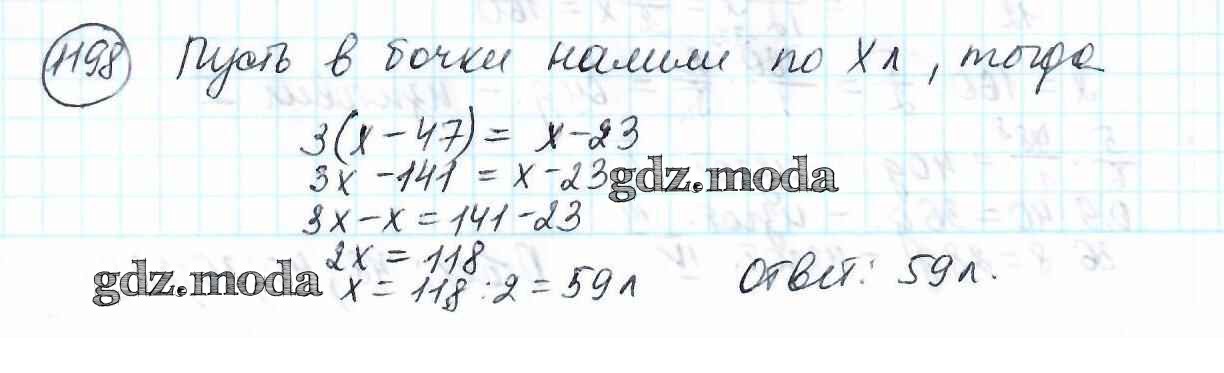 1198 Пусть в бочки налили по х л, тогда
3(х - 47) = х - 23
3х - 141 = х - 23
gdz.moda
3х - х = 141 - 23
2х = 118
gdz.moda
х = 118 : 2 = 59 л
Ответ: 59 л.